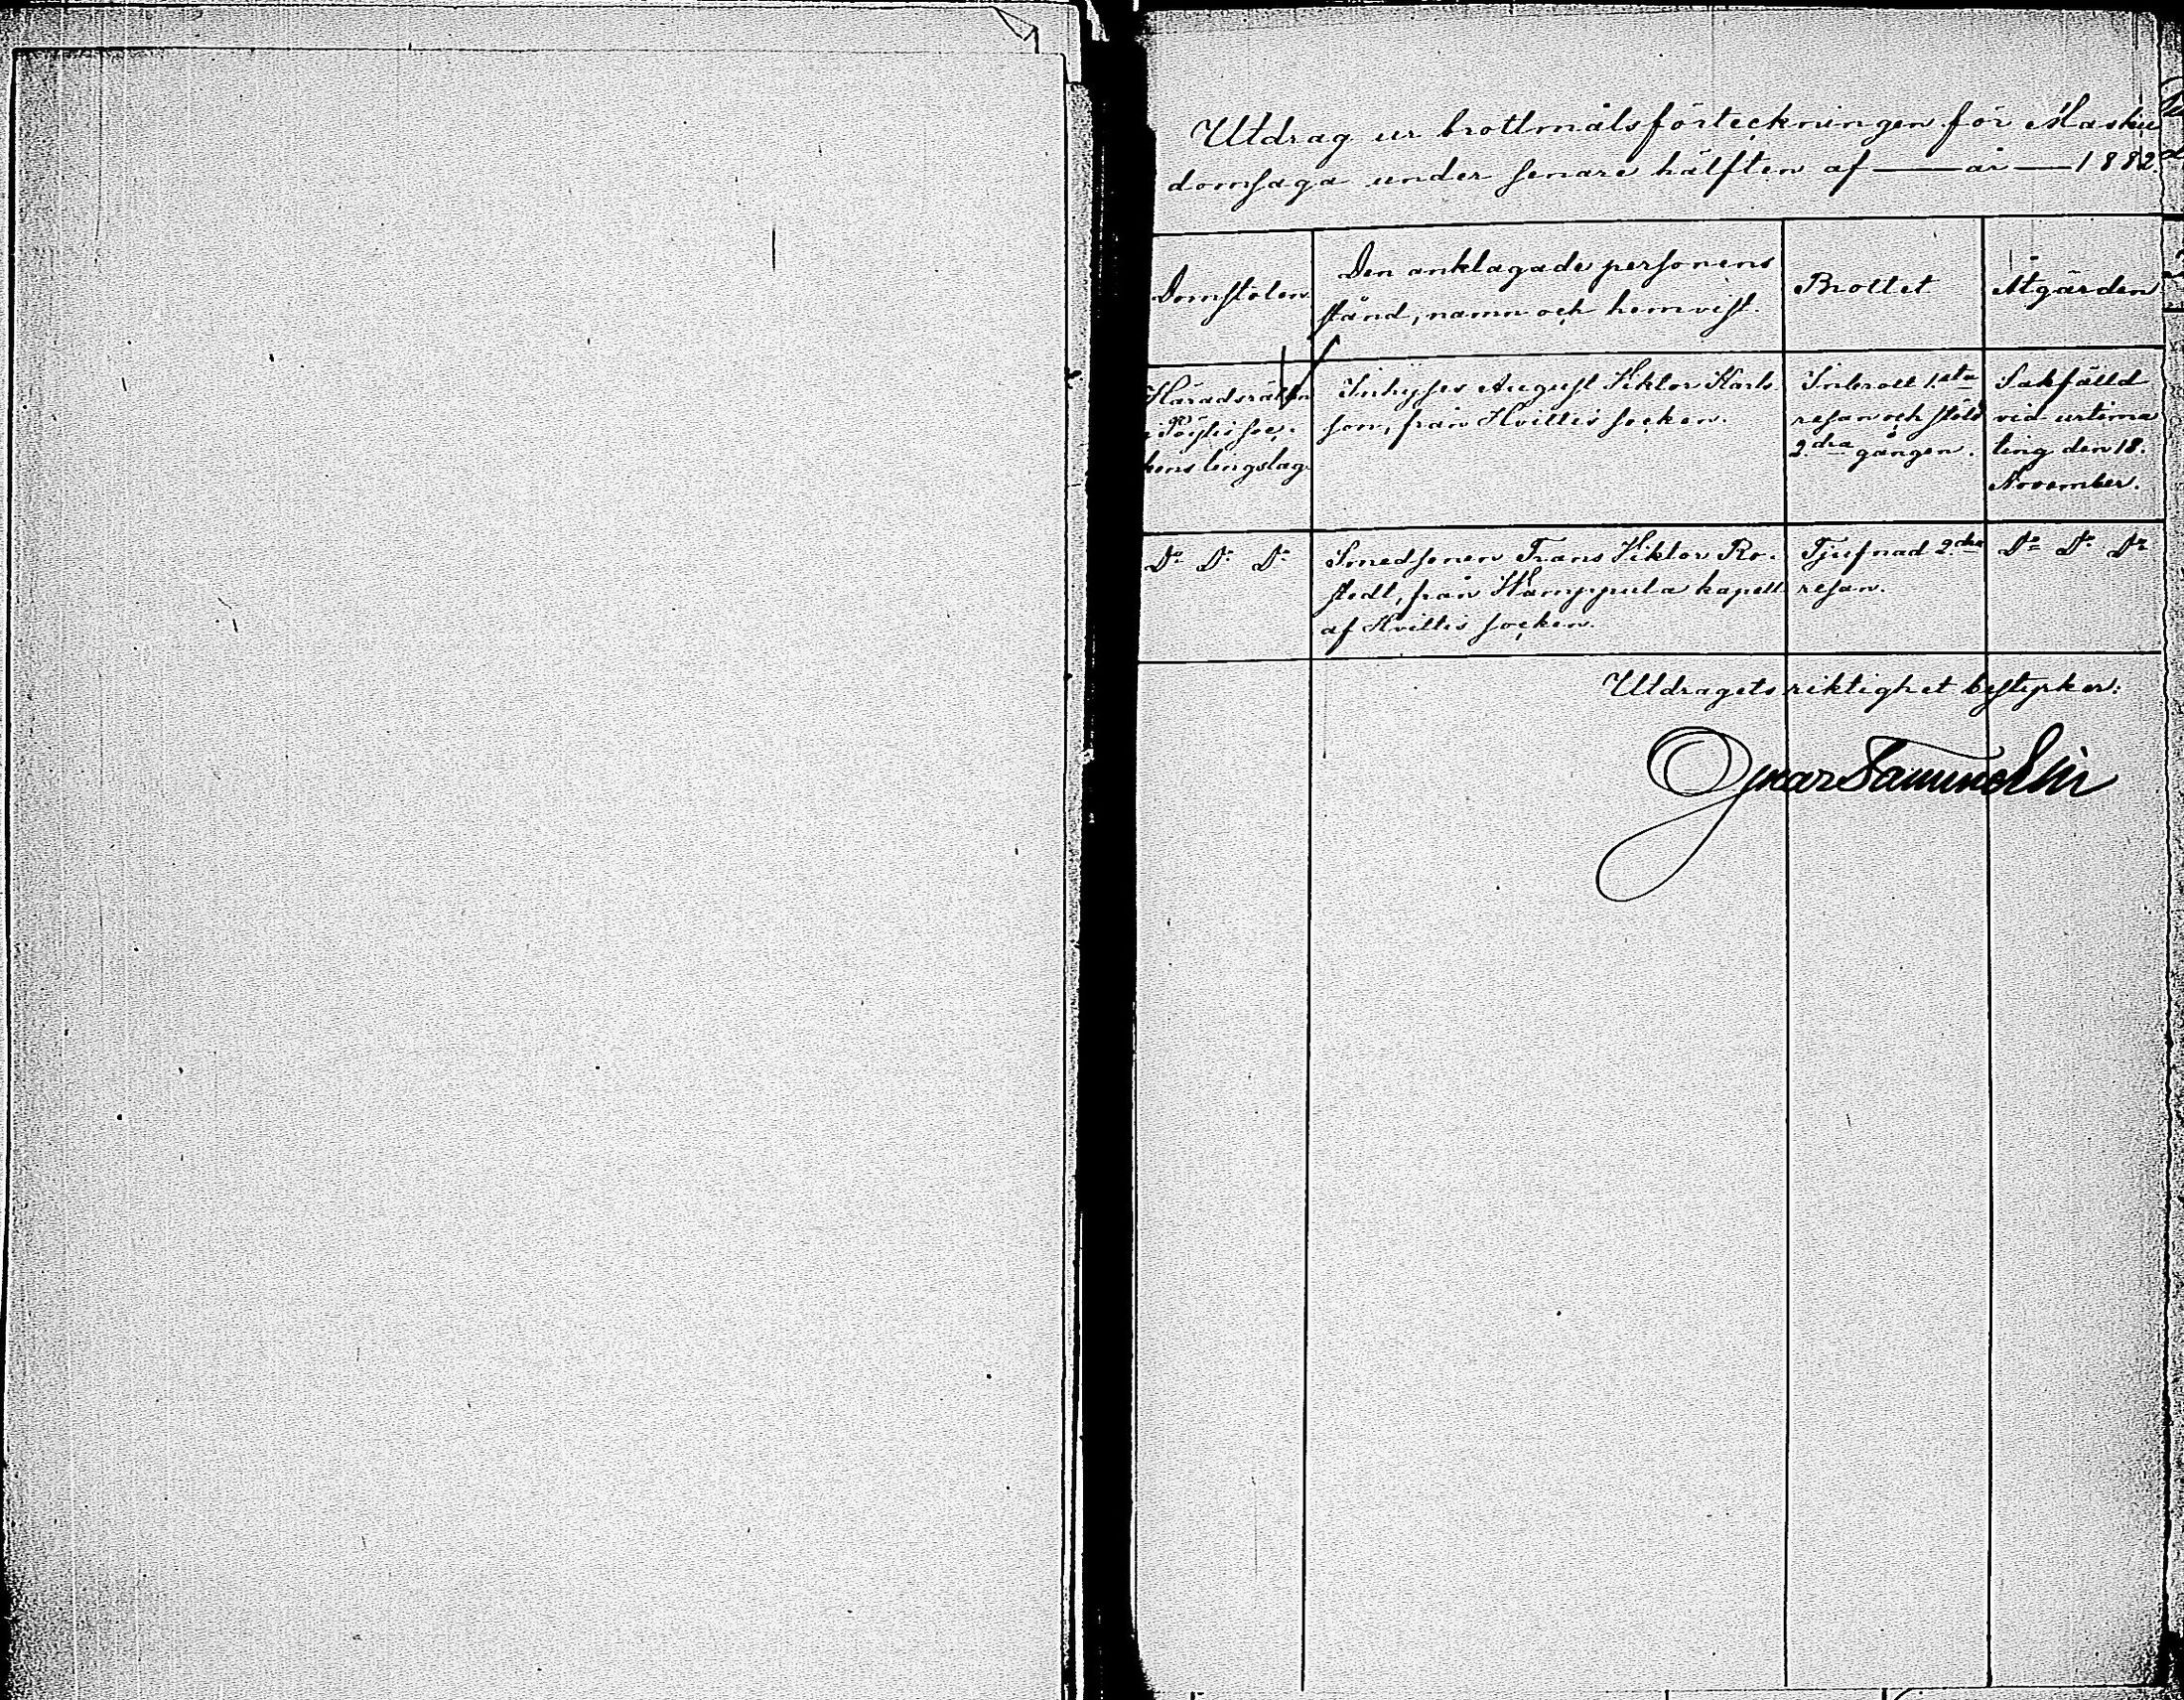 Utdrag ur brottmålsförteckningen för Masku
domsaga under senare hälften af — år — 1882.
Domstolen
Den anklagade personens
stånd, namn och hemvist.
Brottet
Åtgärden
Häradsrätten
i Pöytis soc-
kens tingslag.
Inhyses August Viktor Karls-
son, från Hvittis socken.
Inbrott 1sta
resan och stöld
2dra gången.
Sakfälld
vid urtima
ting den 18.
November.
Do Do Do
Smedsonen Frans Viktor Ro-
stedt, från Wamppula kapell
af Hvittis socken.
Tjufnad 2dra
resan.
Do Do Do
Utdragets riktighet bestyrker: